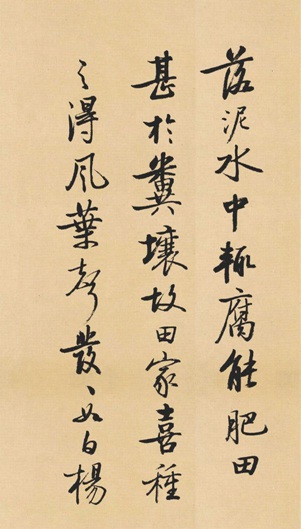 落泥水中輒腐能肥田
甚於糞壤故田家喜種
之得風葉聲發發如白楊